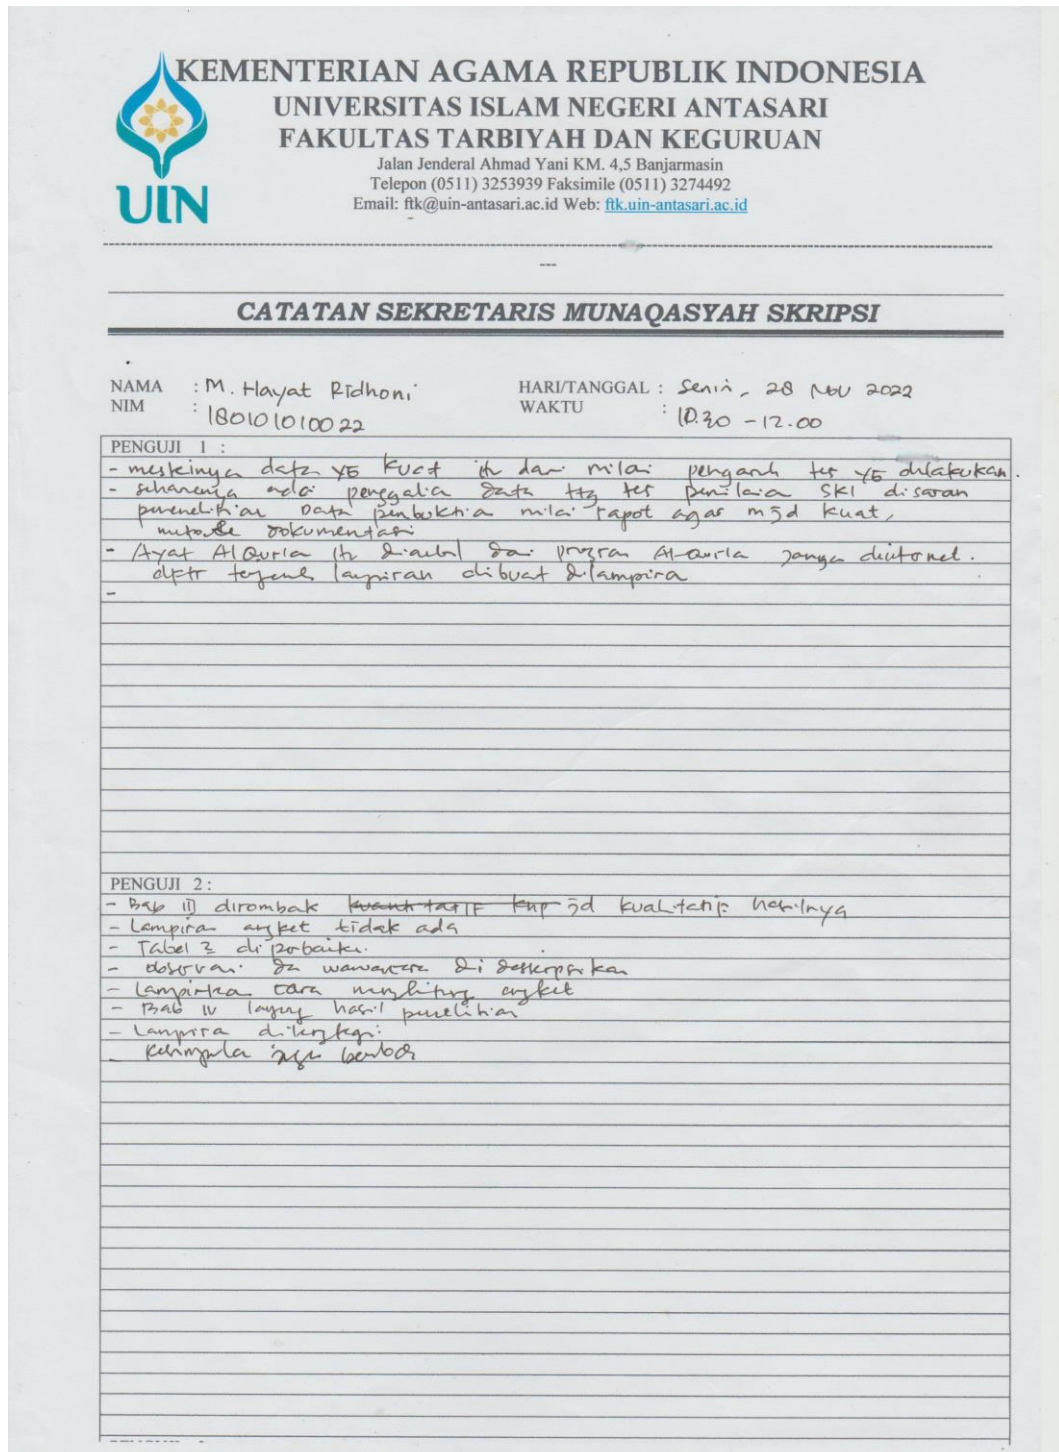 KEMENTERIAN AGAMA REPUBLIK INDONESIA
UNIVERSITAS ISLAM NEGERI ANTASARI
FAKULTAS TARBIYAH DAN KEGURUAN
Jalan Jenderal Ahmad Yani KM. 4,5 Banjarmasin
Telepon (0511) 3253939 Faksimile (0511) 3274492
Email: ftk@uin-antasari.ac.id Web: ftk.uin-antasari.ac.id
UIN
CATATAN SEKRETARIS MUNAQASYAH SKRIPSI
NAMA : M. Hayat Ridhoni HARI/TANGGAL : Senin, 28 Nov 2022
NIM : 180101010022 WAKTU : 10.30 - 12.00
PENGUJI 1 :
- meskinya data yg kuat itu dari nilai pengaruh tes yg dilakukan.
- seharusnya ada penggalia data ttg tes penilaia SKI disaran
Data nilai rapot agar mjd kuat,
dokumentasi
- Ayat AlQur'a itu diambil dari progran Al-Qur'a janga
lampiran dibuat dilampira
-
PENGUJI 2 :
- Bab III dirombak kuantitatif knp jd kualitatif hasilnya
- Lampiran angket tidak ada
- Tabel 3 diperbaiki.
- observasi da wawancara dideskripsikan
- Lampirka cara menghitung angket
- Bab IV hasil penelitian
- Lampira dilengkapi
- kesimpula